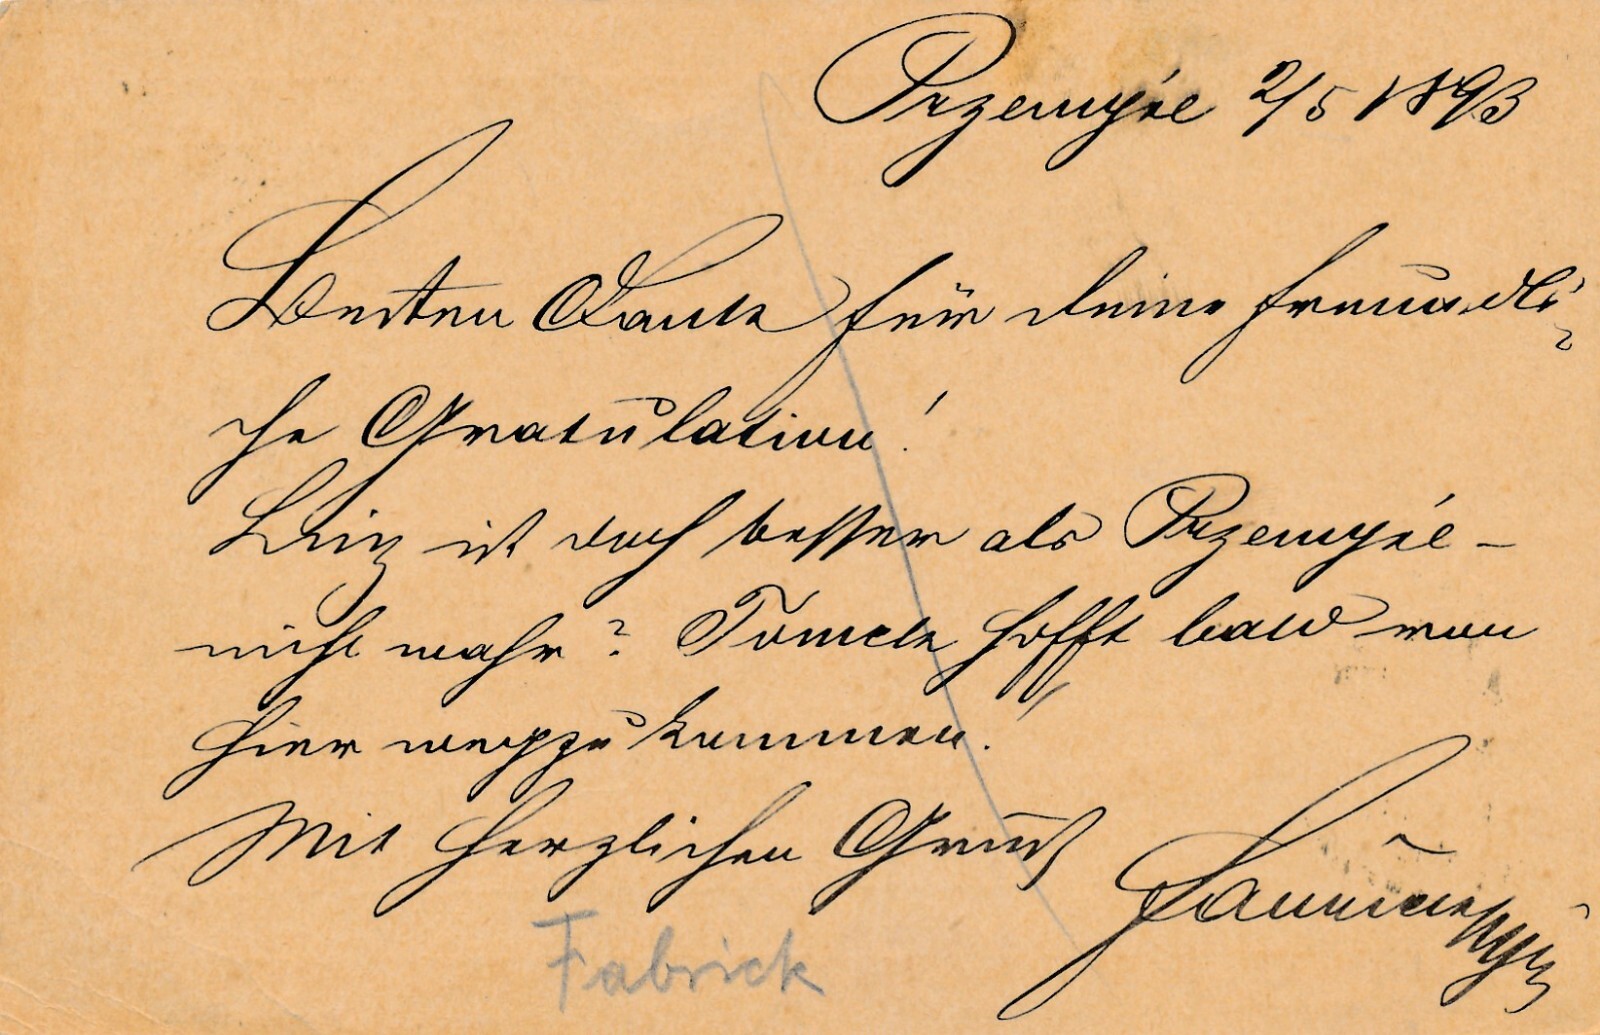 Przemyśl 2/5 1893
Besten Dank für deine freundli-
che Gratulation!
Linz ist doch besser als Przemyśl –
nicht wahr? Tomek hofft bald von
hier wegzukommen!
Mit herzlichen Gruß
Fabrick